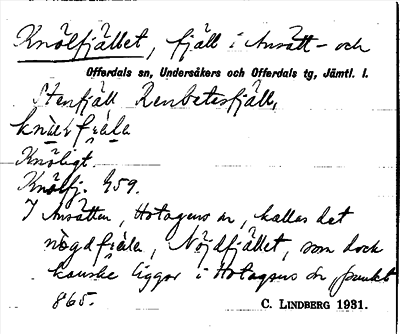 Knölfjället, fjäll i Ansätt- och
Offerdals sn, Undersåkers och Offerdals tg, Jämtl. l.
Stenfjäll Renbetesfjäll,
Knöligt.
Knölfj. 959.
I Ansätten, Hotagens sn, kallas det
Nöjdfjället, som dock
kanske ligger i Hotagens sn, punkt
865.
C. LINDBERG 1931.